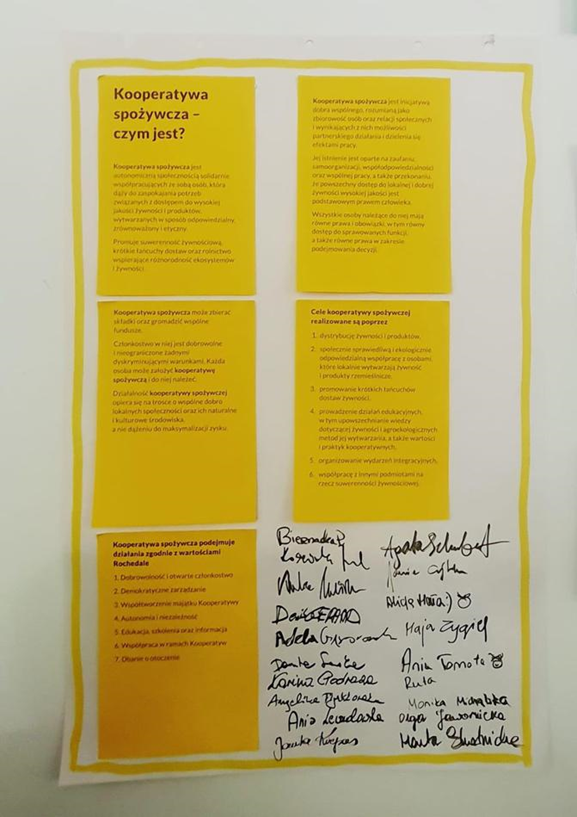 Kooperatywa
spożywcza –
czym jest?
Kooperatywa spożywcza jest
autonomiczną społecznością solidarnie
współpracujących ze sobą osób, która
dąży do zaspokajania potrzeb
związanych z dostępem do wysokiej
jakości żywności i produktów
wytwarzanych w sposób odpowiedzialny,
zrównoważony i etyczny.
Promuje suwerenność żywnościową,
krótkie łańcuchy dostaw oraz rolnictwo
wspierające różnorodność ekosystemów
i żywności.
Kooperatywa spożywcza jest inicjatywą
dobra wspólnego, rozumianą jako
zbiorowość osób oraz relacji społecznych
i wynikających z nich możliwości
partnerskiego działania i dzielenia się
efektami pracy.
Jej istnienie jest oparte na zaufaniu,
samoorganizacji, współodpowiedzialności
oraz wspólnej pracy, a także przekonaniu,
że powszechny dostęp do lokalnej i dobrej
żywności wysokiej jakości jest
podstawowym prawem człowieka.
Wszystkie osoby należące do niej mają
równe prawa i obowiązki, w tym równy
dostęp do sprawowanych funkcji,
a także równe prawa w zakresie
podejmowania decyzji.
Kooperatywa spożywcza może zbierać
składki oraz gromadzić wspólne
fundusze.
Członkostwo w niej jest dobrowolne
i nieograniczone żadnymi
dyskryminującymi warunkami. Każda
osoba może założyć kooperatywę
spożywczą i do niej należeć.
Działalność kooperatywy spożywczej
opiera się na trosce o wspólne dobro
lokalnych społeczności oraz ich naturalne
i kulturowe środowiska,
a nie dążeniu do maksymalizacji zysku.
Cele kooperatywy spożywczej
realizowane są poprzez
1. dystrybucję żywności i produktów.
2. społecznie sprawiedliwą i ekologicznie
odpowiedzialną współpracę z osobami,
które lokalnie wytwarzają żywność
i produkty rzemieślnicze.
3. promowanie krótkich łańcuchów
dostaw żywności.
4. prowadzenie działań edukacyjnych,
w tym upowszechnianie wiedzy
dotyczącej żywności i agroekologicznych
metod jej wytwarzania, a także wartości
i praktyk kooperatywnych.
5. organizowanie wydarzeń integracyjnych.
6. współpracę z innymi podmiotami na
rzecz suwerenności żywnościowej.
Kooperatywa spożywcza podejmuje
działania zgodnie z wartościami
Rochedale
1. Dobrowolność i otwarte członkostwo
2. Demokratyczne zarządzanie
3. Współtworzenie majątku Kooperatywy
4. Autonomia i niezależność
5. Edukacja, szkolenia oraz informacja
6. Współpraca w ramach Kooperatyw
7. Dbanie o otoczenie
Adela
Karina Godrasa
Angelika
Ania
Agata Schubert
Alicja
Maja Zygiel
Ania Tomota
Ruta
Monika
Olga Jawornicka
Marta